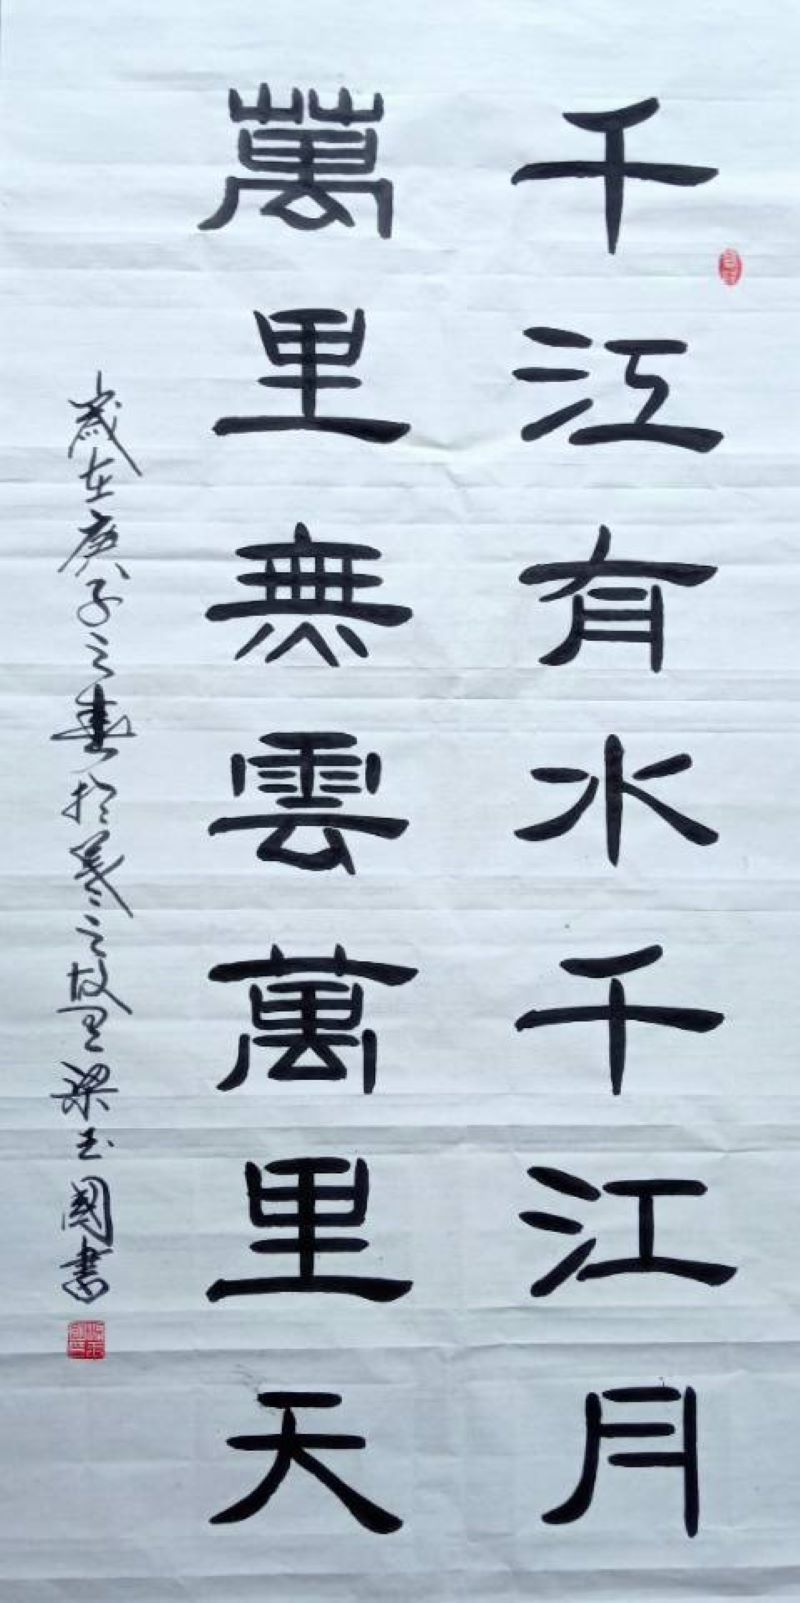 千江有水千江月
萬里無雲萬里天
歲在庚子之春於羲之故里梁玉國書